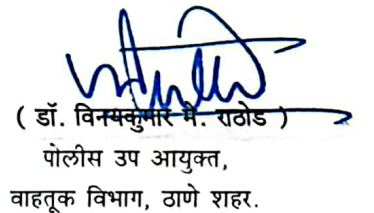 ( डॉ. विनयकुमार मै. राठोड )
पोलीस उप आयुक्त,
वाहतूक विभाग, ठाणे शहर.